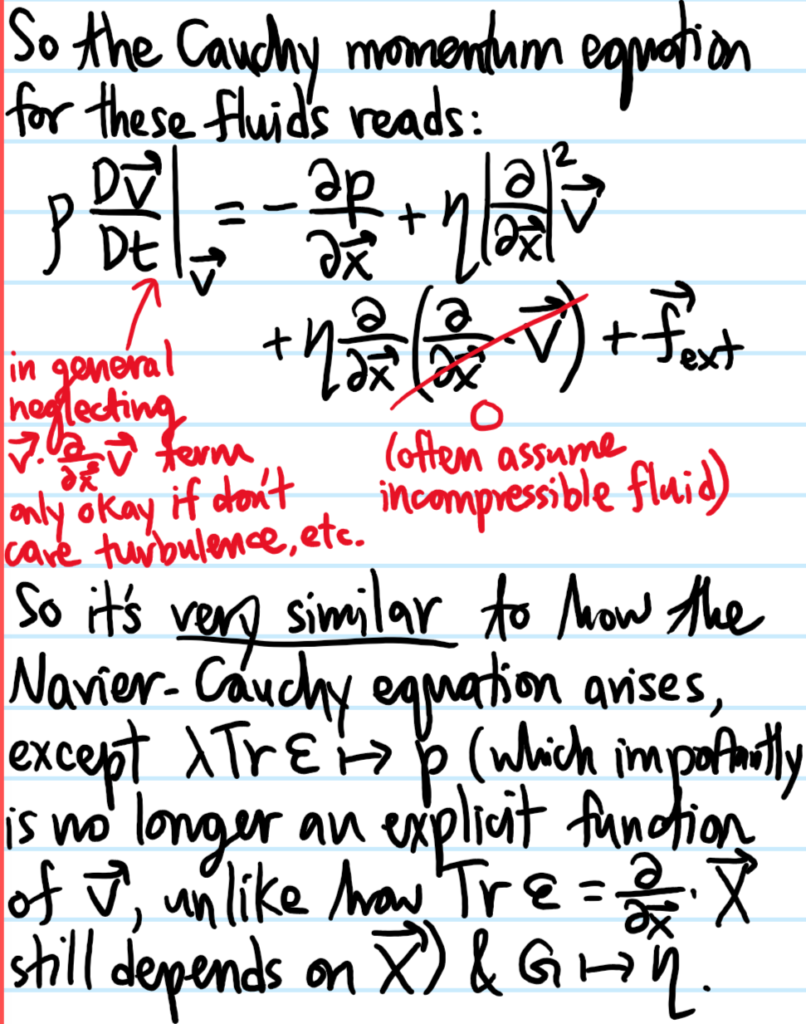 So the Cauchy momentum equation
for these fluids reads:
ρ D\vec{v}/Dt |_{\vec{v}} = - ∂p/∂\vec{x} + η |∂/∂\vec{x}|² \vec{v}
+ η ∂/∂\vec{x} (∂/∂\vec{x} · \vec{v}) + \vec{f}_{ext}
0
in general
neglecting
\vec{v} · ∂/∂\vec{x} \vec{v} term
only okay if don't
care turbulence, etc.
(often assume
incompressible fluid)
So it's very similar to how the
Navier-Cauchy equation arises,
except λTr ε ↦ p (which importantly
is no longer an explicit function
of \vec{v}, unlike how Tr ε = ∂/∂\vec{x} · \vec{X}
still depends on \vec{X}) & G ↦ η.